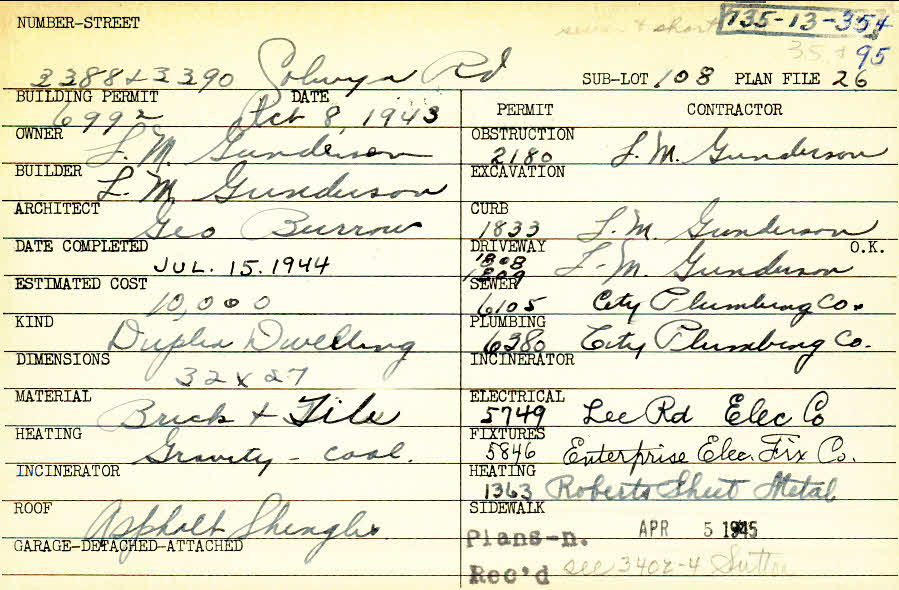 NUMBER-STREET
735-13-354
95
3388 & 3390 Solwyn Rd
SUB-LOT 108 PLAN FILE 26
BUILDING PERMIT DATE
6992 Oct 8, 1943
PERMIT CONTRACTOR
OWNER L. M. Gunderson
OBSTRUCTION
2180 L. M. Gunderson
BUILDER L. M. Gunderson
EXCAVATION
ARCHITECT Geo Burrow
CURB
1833 L. M. Gunderson
DATE COMPLETED
JUL. 15. 1944
DRIVEWAY O.K.
1808
1809 L. M. Gunderson
ESTIMATED COST
10,000
SEWER
6105 City Plumbing Co.
KIND Duplex Dwelling
PLUMBING
6380 City Plumbing Co.
DIMENSIONS
32 x 27
INCINERATOR
MATERIAL Brick & Tile
ELECTRICAL
5749 Lee Rd Elec Co
HEATING Gravity - coal.
FIXTURES
5846 Enterprise Elec. Fix Co.
INCINERATOR
HEATING
1363 Roberts Sheet Metal
ROOF Asphalt Shingles
SIDEWALK
APR 5 1945
GARAGE-DETACHED-ATTACHED
Plans-n.
Rec'd see 3402-4 Sutton